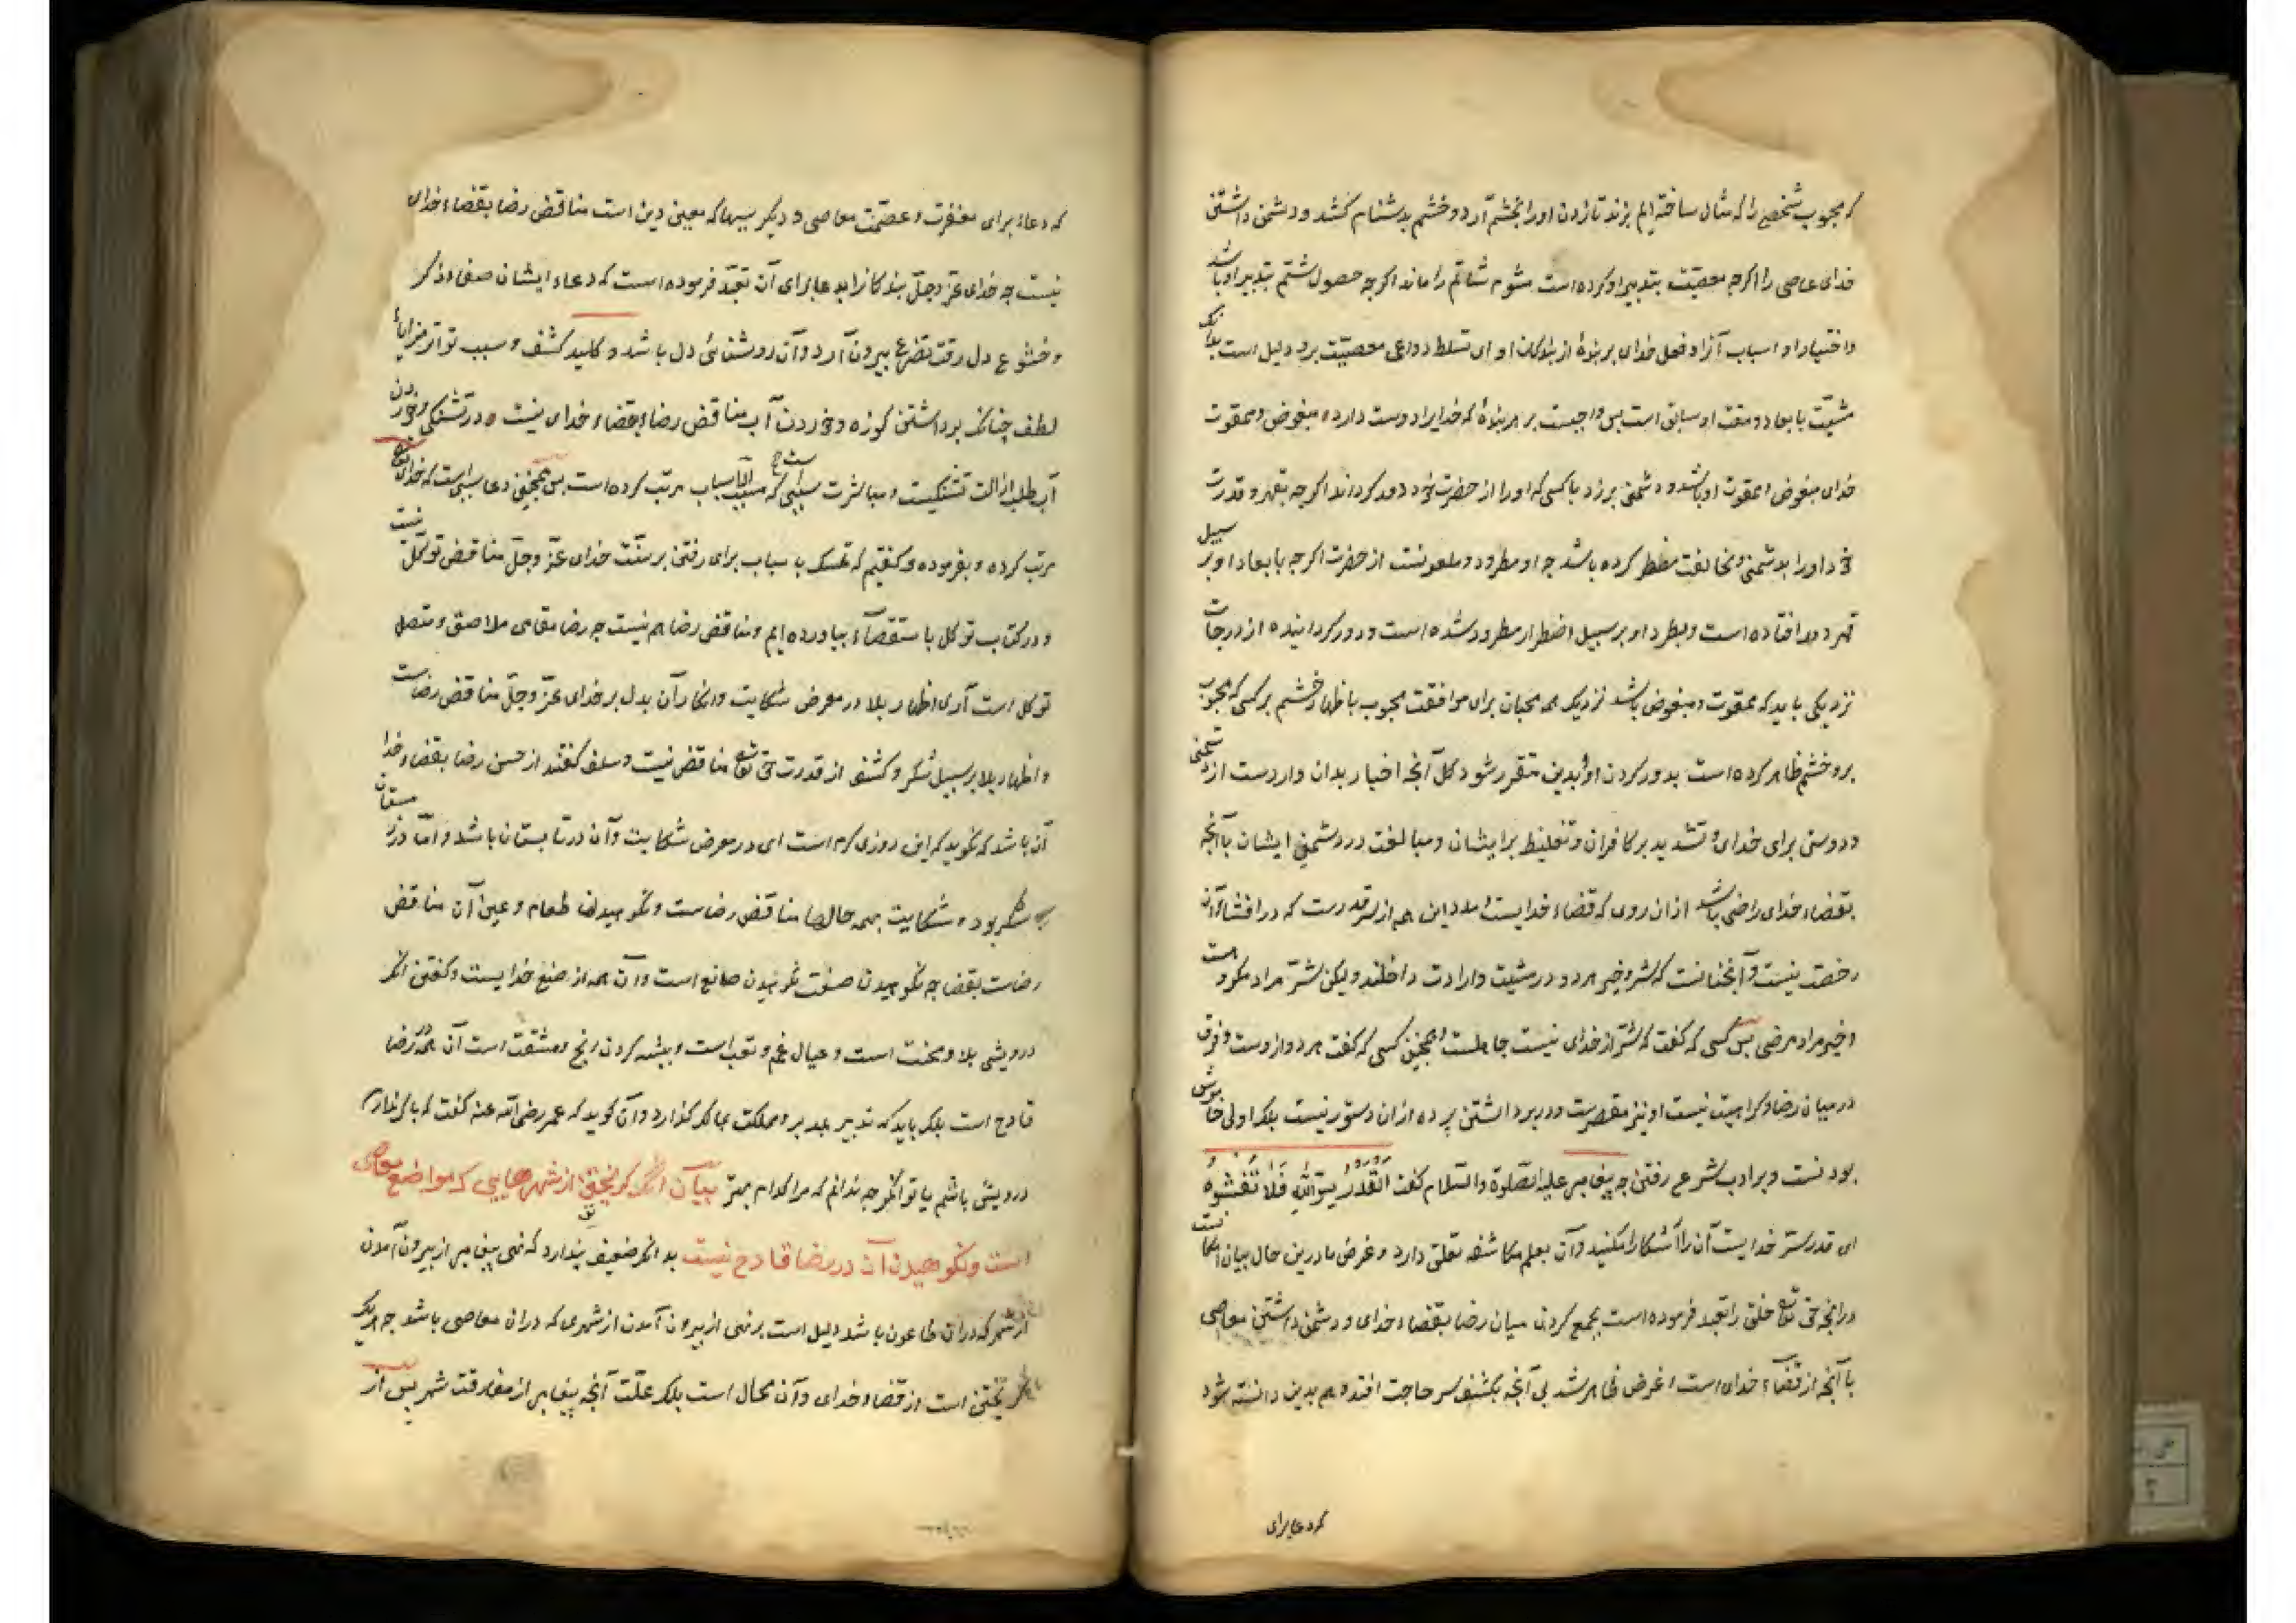 که محبوب شخصی را که مثال ساخته‌ایم بزند تا زدن او را بخشم آرد و خشم بدشنام کشد و دشمن داشتن
خدای عاصی را اگرچه معصیت بتدبیر او کرده است بشوم شاتم را ماند اگرچه حصول شتم بتدبیر او باشد
و اختیار او و اسباب آن از او فعل خدای بر بندهٔ از بندگان او ای تسلط دواعی معصیت برو دلیل است بدانک
مشیّت بابعاد و مقت او سابق است پس واجبست بر هر بندهٔ که خدایرا دوست دارد و مبغوض و ممقوت
خدای مبغوض و ممقوت او باشد و دشمنی برزد با کسی که او را از حضرت خود دور گرداند اگرچه بقهر و قدرت
خود او را بدشمنی و مخالفت مضطر کرده باشد چه او مطرود و ملعونست از حضرت اگرچه بابعاد او بر سبیل
قهر دور افتاده است و بطرد او بر سبیل اضطرار مطرود شده است و دور گردانیده از درجات
نزدیکی باید که ممقوت و مبغوض باشد نزدیک همه محبان برای موافقت محبوب باظهار خشم بر کسی که محبوب
برو خشم ظاهر کرده است بدور کردن او و بدین متقرر شود کل آنچه اخبار بدان واردست از دشمنی
و دوستی برای خدای و تشدید بر کافران و تغلیظ بر ایشان و مبالغت در دشمنی ایشان با آنچه
بقضاء خدای راضی باشد از آن روی که قضاء خدایست و مدد این همه از سرّ قدرست که در افشاء آن
رخصت نیست و آنچنانست که شر و خیر هر دو در مشیت و ارادت داخلند ولیکن شرّ مراد مکروه است
و خیر مراد مرضی پس کسی که گفت که شر از خدای نیست جاهلست و همچنین کسی که گفت هر دو ازوست و فرق
در میان رضا و کراهیت نیست او نیز مقصرست و در برداشتن پرده از آن دستور نیست بلکه اولی خاموش
بودنست و بر ادب شرع رفتن چه پیغامبر علیه الصلوة والسلام گفت اَلْقَدَرُ سِرُّ اللّٰهِ فَلَا تُفْشُوهُ
ای قدر سرّ خدایست آن را آشکارا مکنید و آن بعلم مکاشفه تعلق دارد و غرض ما درین حال بیان امکانست
در آنچه حق تعالی خلق را تعبد فرموده است بجمع کردن میان رضا بقضاء خدای و دشمن داشتن معاصی
با آنچه از قضاء خدای است و غرض ظاهر شد بی آنچه بکشف سر حاجت افتد و هم بدین دانسته شود
که دعا برای
که دعاء برای مغفرت و عصمت معاصی و دیگر سببها که معین دین است مناقض رضا بقضاء خدای
نیست چه خدای عزّ وجلّ بندگانرا بدعا برای آن تعبّد فرموده است که دعاء ایشان صفاء ذکر
و خشوع دل و رقت تضرع بیرون آرد و آن روشنائی دل باشد و کلید کشف و سبب تواتر مزایاء
لطف چنانکه برداشتن کوزه و خوردن آب مناقض رضاء بقضاء خدای نیست و در تشنگی و خوردن
آب طلب ازالت تشنگیست و مباشرت سببی که مسبب الاسباب مرتب کرده است پس همچنین دعا سببی است که خدای تعالی
مرتب کرده و بفرموده و گفتیم که تمسک باسباب برای رفتن بر سنّت خدای عزّ وجلّ مناقض توکل نیست
و در کتاب توکل باستقصاء بیاورده ایم و مناقض رضا هم نیست چه رضا مقامی ملاصق و متصل
توکل است آری اظهار بلا در معرض شکایت و انکار آن بدل بر خدای عزّ وجلّ مناقض رضاست
و اظهار بلا بر سبیل شکر و کشف از قدرت حق تعالی مناقض نیست و سلف گفتند از حسن رضا بقضاء خدا
آن باشد که نگوید که این روزی گرم است ای در معرض شکایت و آن در تابستان باشد و امّا در زمستان
شکر بود و شکایت بهمه حالها مناقض رضاست و نکوهیدن طعام و عیب آن مناقض
رضاست بقضا چه نکوهیدن صنعت نکوهیدن صانع است و آن همه از صنع خدایست و گفتن آنکه
درویشی بلا و محنت است و عیال غم و تعب است و پیشه کردن رنج و مشقت است آن همه در رضا
قادح است بلکه باید که تدبیر بمدبر و مملکت بمالک گذارد و آن گوید که عمر رضی الله عنه گفت که باک ندارم
درویش باشم یا توانگر چه ندانم که مرا کدام بهتر بیان آنکه گریختن از شهرهایی که مواضع معاصی
است و نکوهیدن آن در رضا قادح نیست بدانکه ضعیف پندارد که نهی پیغامبر از بیرون آمدن
از شهر که در آن طاعون باشد دلیل است بر نهی از بیرون آمدن از شهری که در آن معاصی باشد چه هر یک
گریختن است از قضاء خدای و آن محال است بلکه علّت آنچه پیغامبر از مفارقت شهر پس از